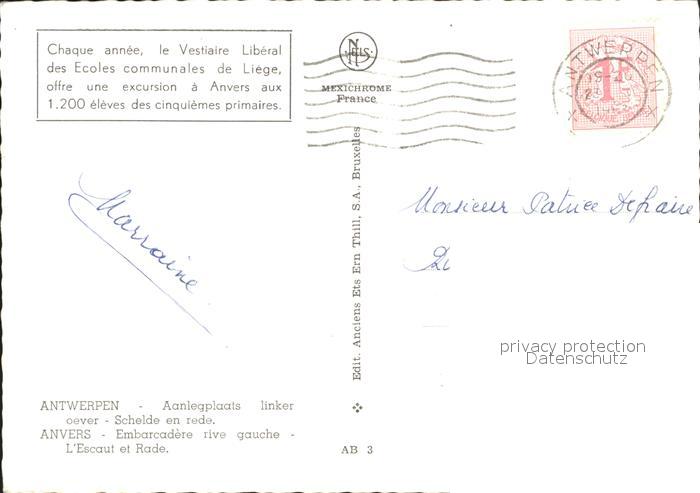 Chaque année, le Vestiaire Libéral
des Ecoles communales de Liège,
offre une excursion à Anvers aux
1.200 élèves des cinquièmes primaires.
NELS
MEXICHROME
France
ANTWERPEN
Edit. Anciens Ets Ern Thill, S.A., Bruxelles
Marraine
Monsieur Patrice Defraire
privacy protection
Datenschutz
ANTWERPEN - Aanlegplaats linker
oever - Schelde en rede.
ANVERS - Embarcadère rive gauche -
L'Escaut et Rade.
AB 3